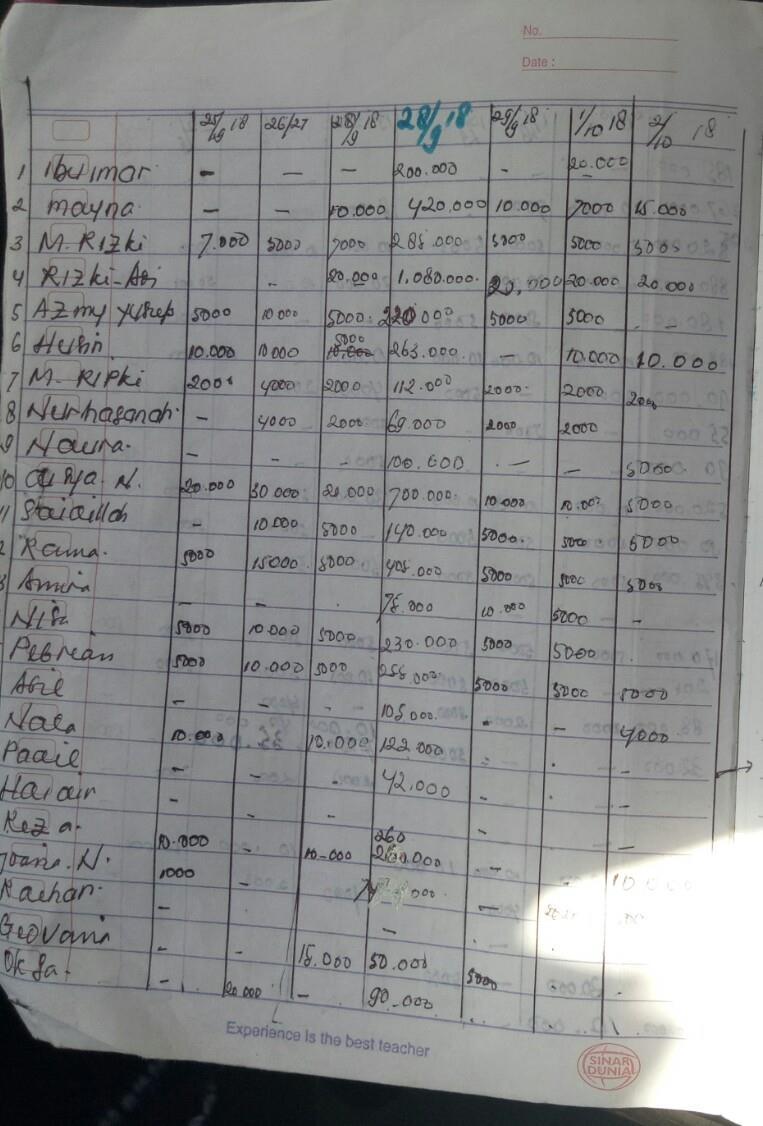 No.
Date :
25/9 18 26/27 28/9 18 28/9 18 29/9 18 1/10 18 2/10 18
1 Ibu imar - - - 200.000 - 20.000
2 mayna - - 10.000 420.000 10.000 7000 15.000
3 M. RIZKi 7.000 5000 7000 285.000 5000 5000 5000
4 RIZKi-Abi - 20.000 1.080.000. 20.000 20.000 20.000
5 AZmy yusup 5000 10.000 5000. 220 000 5000 5000 - -
6 10.000 10 000 5000 10.000 263.000. - 10.000 10.000
7 M. RIPKi 2000 4000 2000 112.000 2000. 2000 2000
8 Nurhasanah. - 4000 2000 69.000 2000 2000
9 Naura. - - - 100.000 - - 5000.
10 N. 20.000 30 000 20.000 700.000. 10.000 10.000 5000
11 - 10.000 5000 140.000 5000. 5000 5000
2 Rama. 5000 15000 5000 405.000 5000 5000 5000
3 Amira - - . 75.000 10.000 5000 -
Nisa 5000 10.000 5000 230.000 5000 5000 .
Pebrian 5000 10.000 5000 255.000. 5000 5000 5000
- - 105.000. - - 4000
10.000 10.000 122.000 . -
Paail - - - 42.000 - . -
- - - -
Reza. 10.000 - 10.000 260 000.000 - 10000
N. 1000 - 000
- - -
Geovani - - 15.000 50.000 5000 . .
Oksa. - 20.000 - 90.000 .. . .
Experience Is the best teacher
SINAR
DUNIA